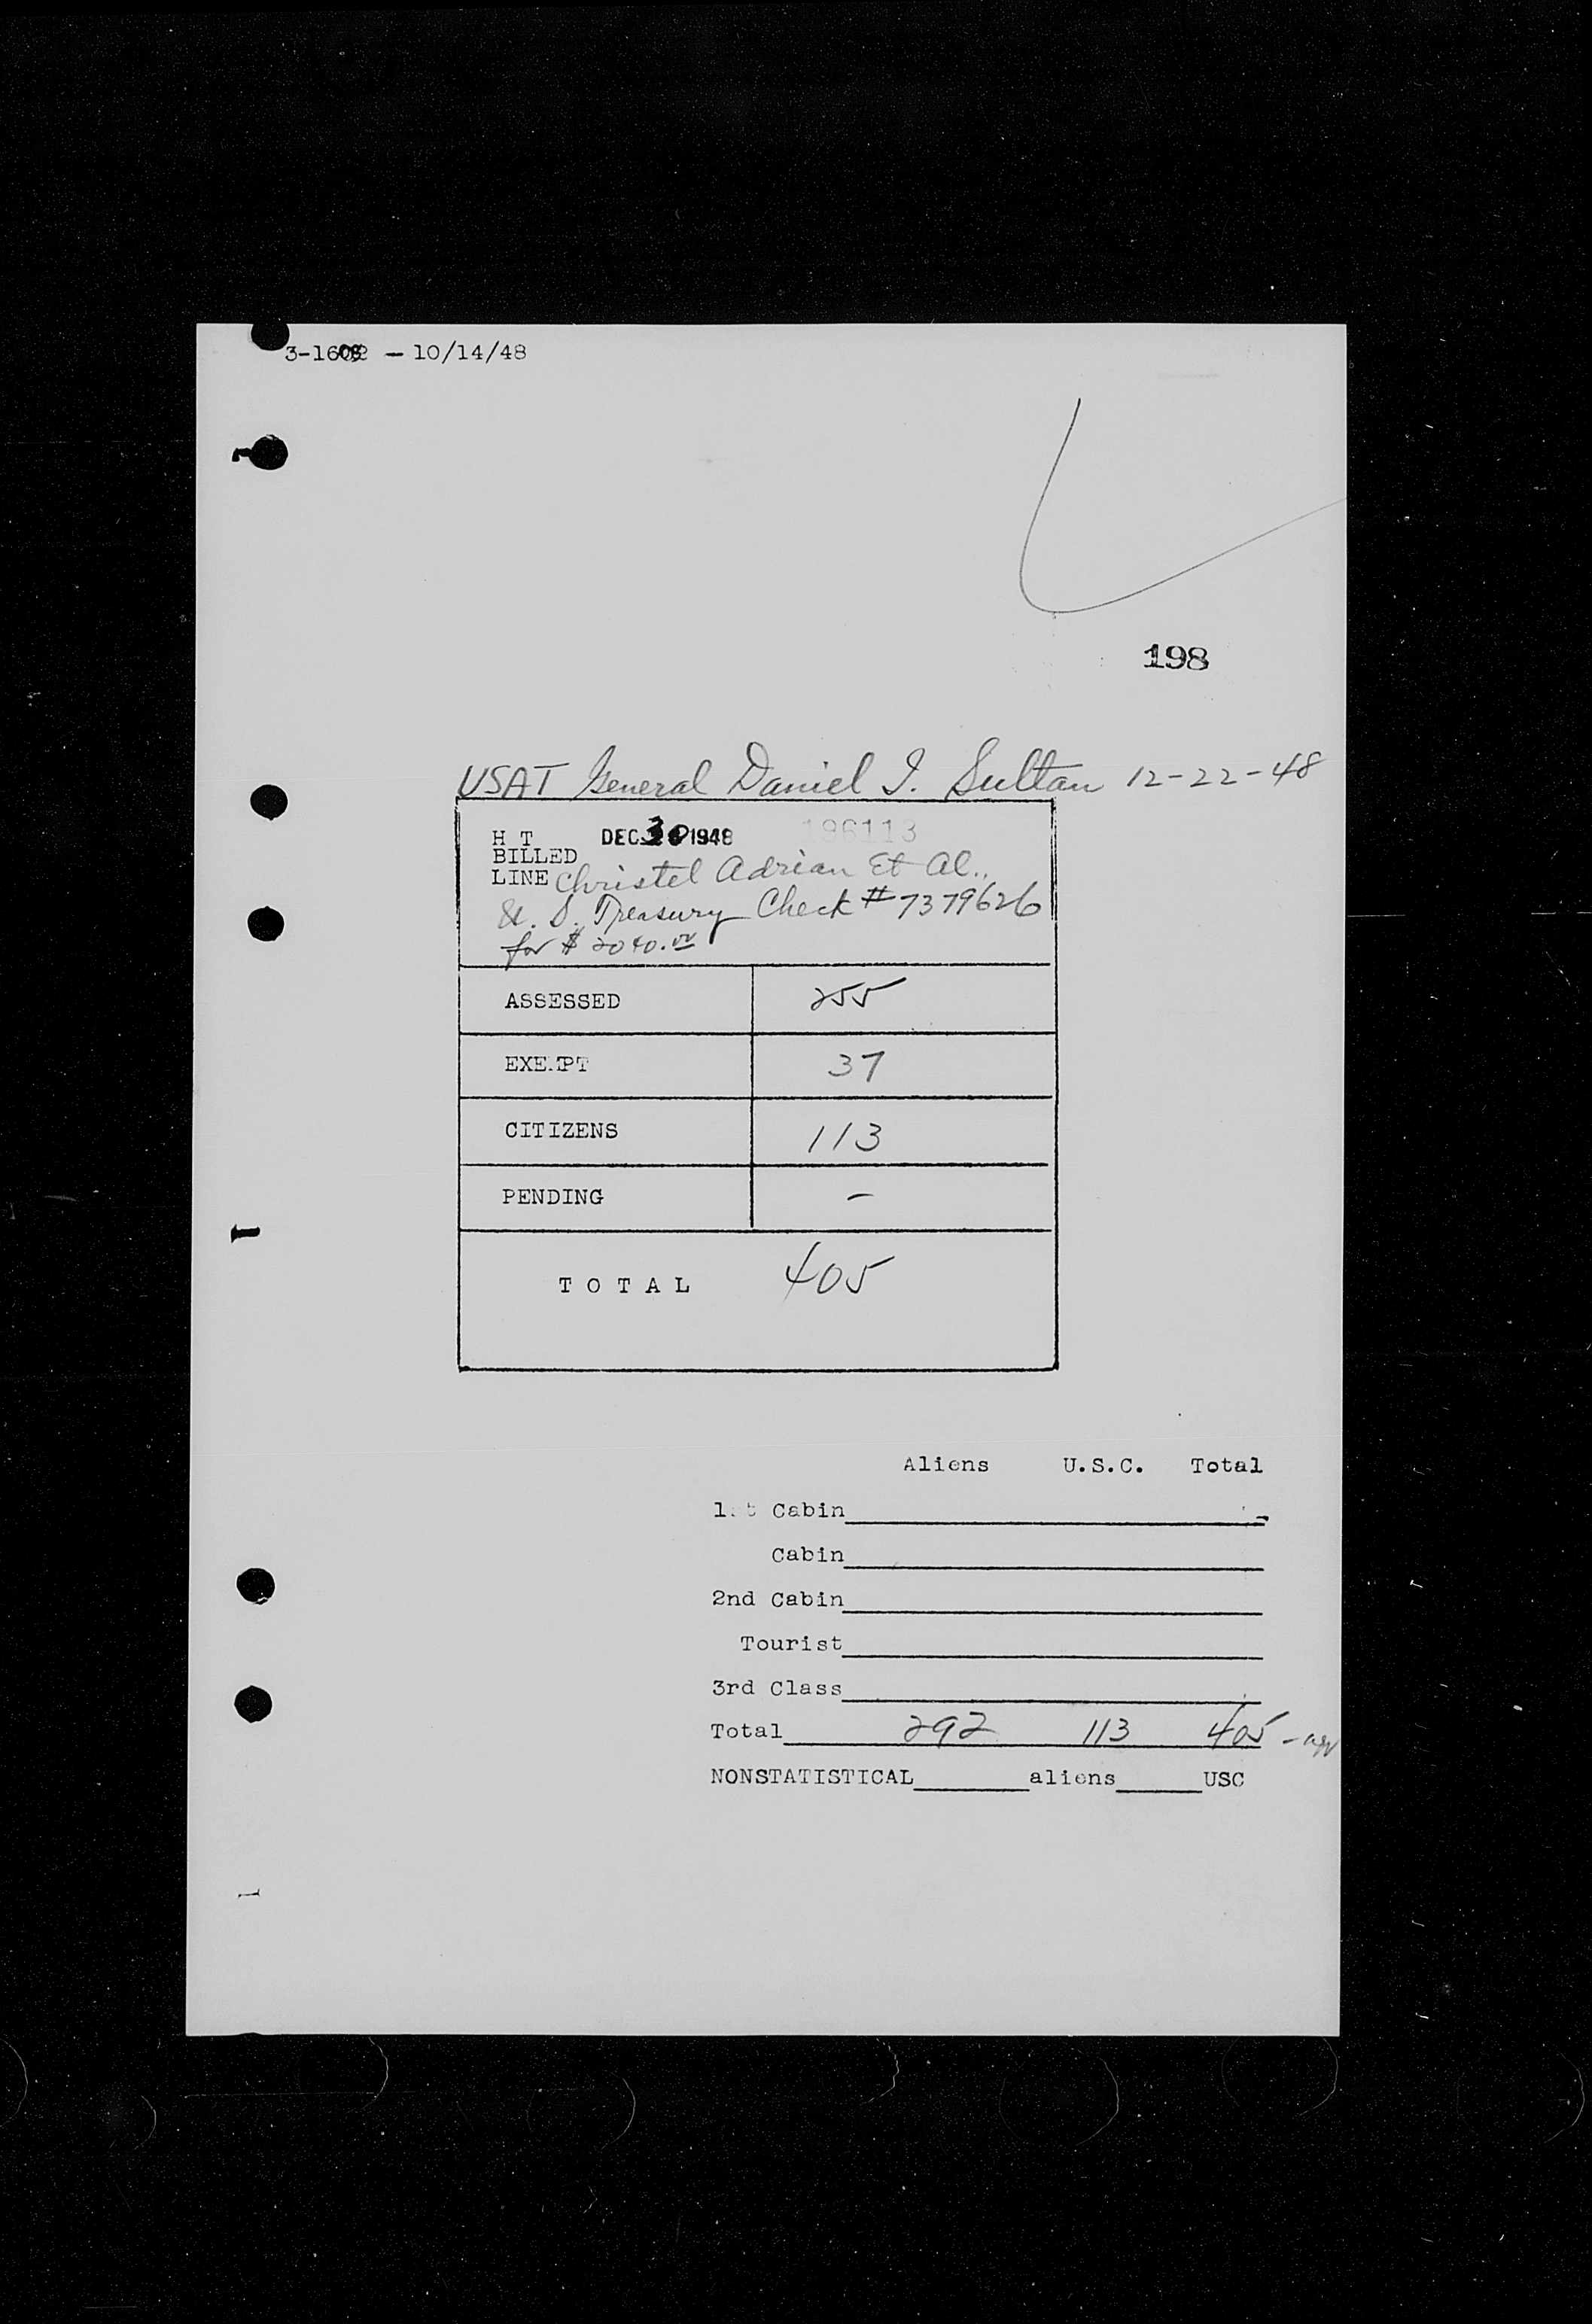 — 10/14/48
198
USAT General Daniel I. Sultan 12-22-48
H T DEC 30 1948 196113
BILLED
LINE Christel Adrian Et Al.,
U. S. Treasury Check # 7379626
for $ 2040.00
ASSESSED 255
EXEMPT 37
CITIZENS 113
PENDING –
TOTAL 405
Aliens U.S.C. Total
1st Cabin
Cabin
2nd Cabin
Tourist
3rd Class
Total 292 113 405
NONSTATISTICAL aliens USC